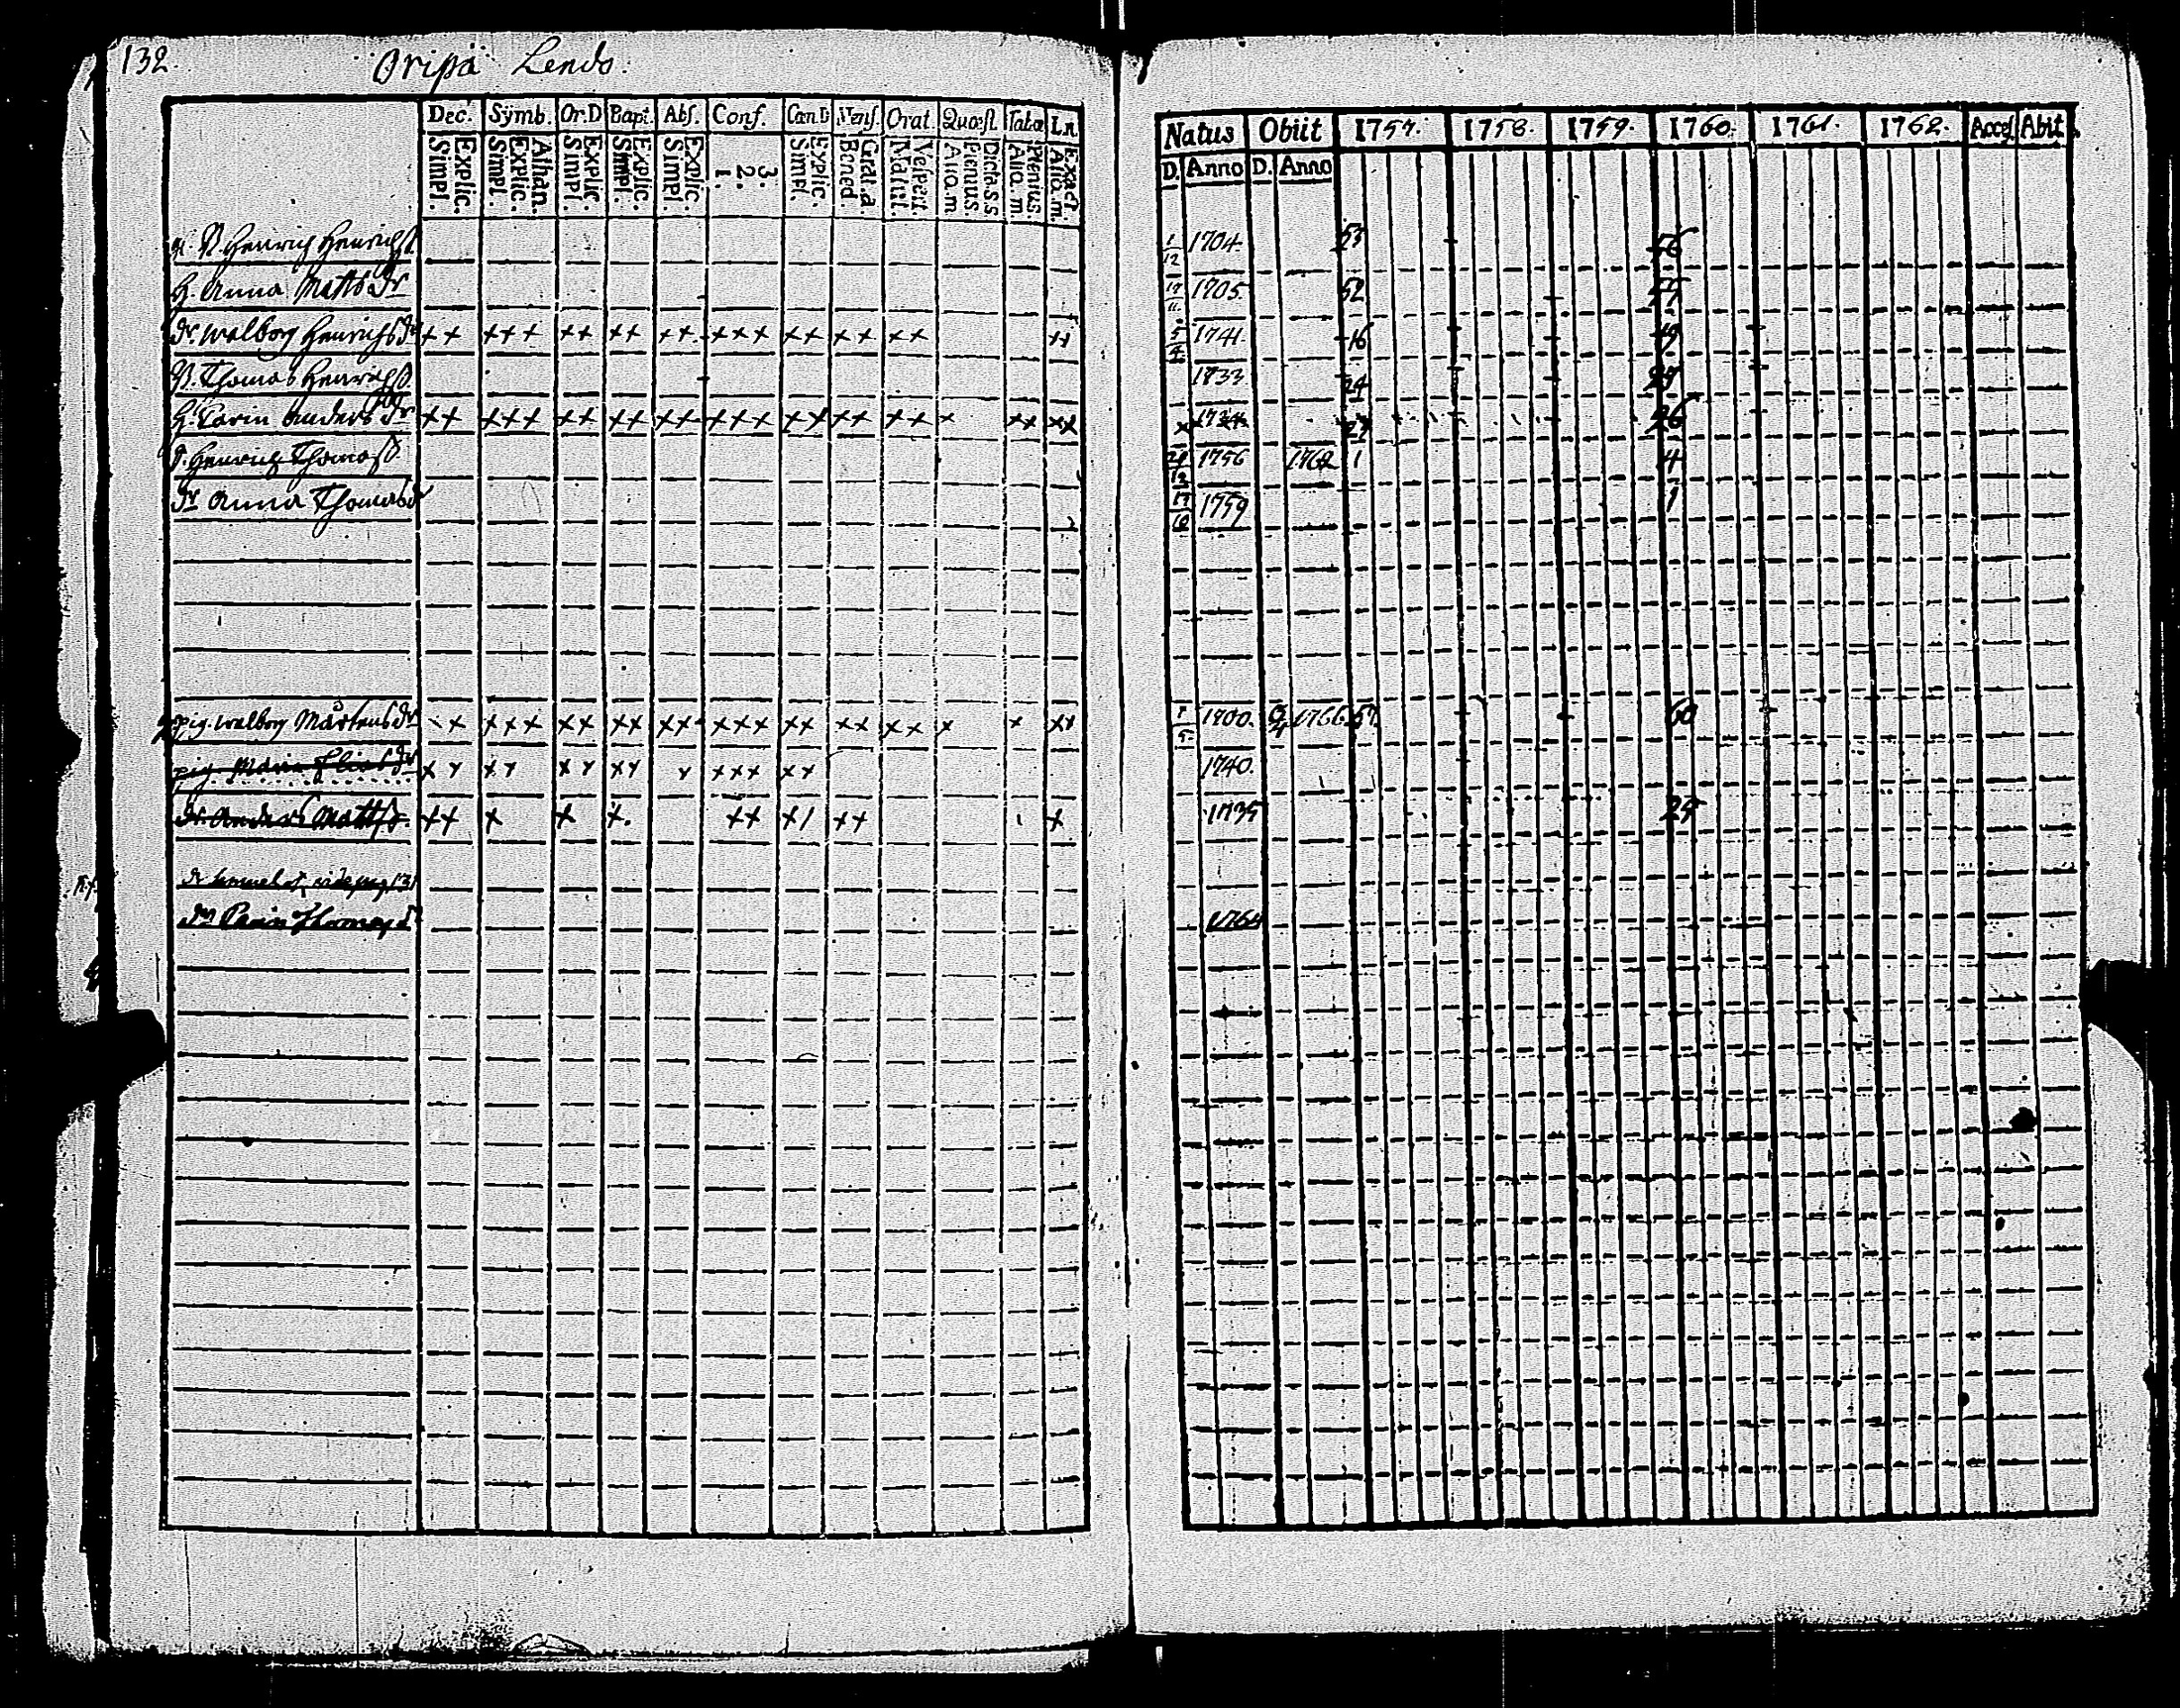 132.
Oripää Lendo.
Dec. Symb. Or.D Bapt. Abs. Conf. Can.D Mens. Orat. Quæst. Tabæ Ln
Explic. Simpl. Athan. Explic. Simpl. Explic. Simpl. Explic. Simpl. Explic. Simpl. 3. 2. 1. Explic. Simpl. Grat. a. Bened Vespert. Matut. Dicta.S.S Plenius. Aliq.m Plenius. Aliq.m. Exact. Aliq.m.
Natus Obiit 1757. 1758. 1759. 1760. 1761. 1762. Acces Abit
D. Anno D. Anno
Henrich Henrichss. 1/12 1704. 53 56
H. Anna Matts dr 1705. 52
dr Walborg Henrichs dr ×× ××× ×× ×× ×× ××× ×× ×× ×× ×× 5 1741. 16 19
Thomas Henrichss. 1733 24
H. Carin Anders dr ×× ××× ×× ×× ×× ××× ×× ×× ×× × ×× ×× 26
S. Henrich Thomass. 1756 1762 1 4
dr Anna Thomas dr 1759 1
pig. Walborg Mårtens dr ×× ××× ×× ×× ×× ××× ×× ×× ×× × × ×× 1700. 1766. 57 60
pig Maria Elias dr ×× ×× ×× ×× × ××× ×× 1740.
dr. Anders Mattss. ×× × × ×. ×× ×1 ×× ×  1735 25
vide pag 131
dr Carin Thomas dr 1764